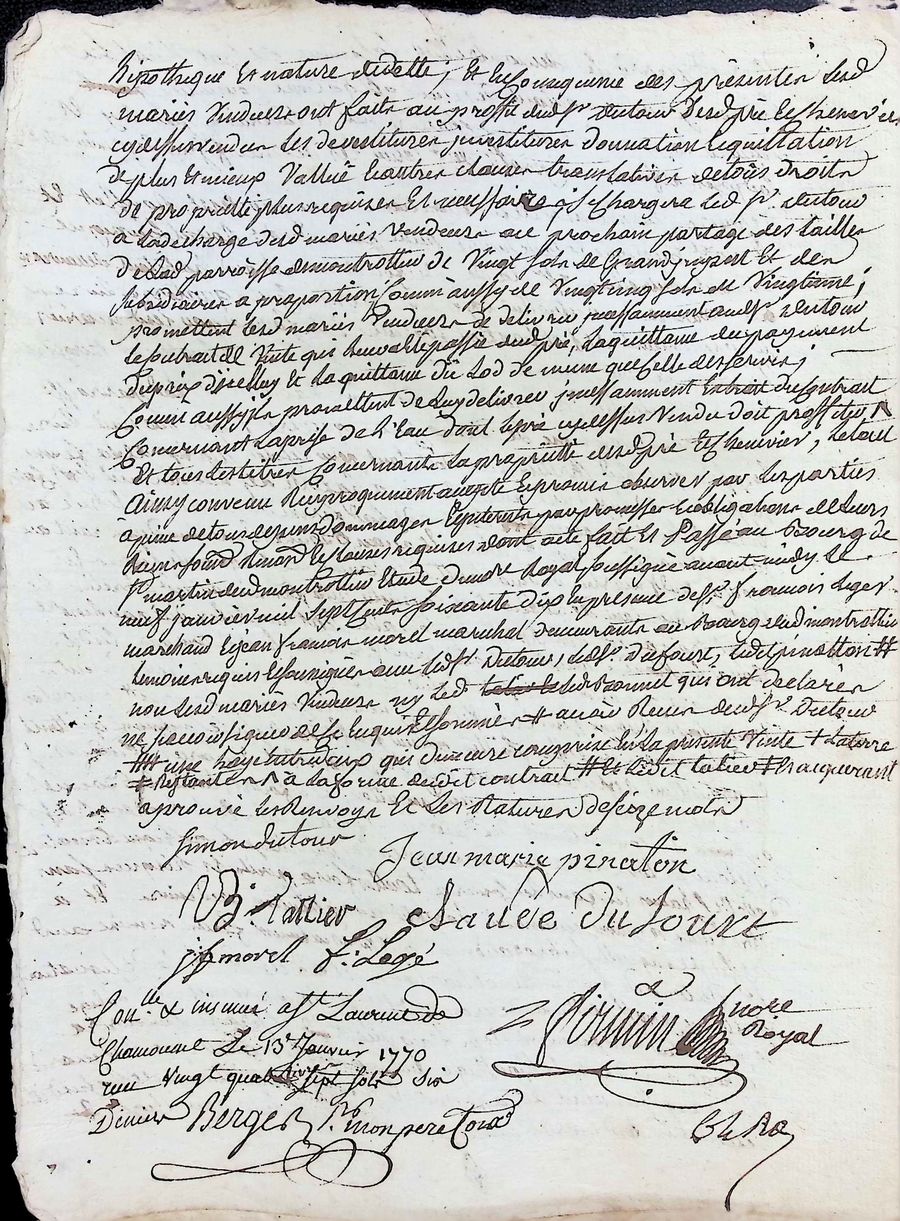 hipotheque et nature de dette, et en consequence des presentes lesd
mariés vendeurs ont faits au proffit dud sr. dutour desd pré et chenevier
cy dessus vendus les devestitures investitures donnation et quittation
de plus et mieux vallué et autres clauses translatives de tous droits
de proprietté plus requises et necessaires se chargera led sr. dutour
a la decharge desd mariés vendeurs au prochain partage des tailles
de lad parroisse de montrottier de vingt sols de grand et des
a proportion comm aussy de vingt cinq sols de vingtieme;
promettent lesd mariés vendeurs de delivrer incessamment aud sr dutour
le contrait de vente qui leur a été passée dud pré, la quittance du payement
du prix d'icelluy et la quittance du lod de meme que celle des servis;
comm aussy ils promettent de luy delivrer incessamment extrait du contrait
concernant la prise de l'eau dont le pré cy dessus vendu doit proffiter,
et tous les titres concernants la proprietté desd pré et chenevier, le tout
ainsy convenu reciproquement accepté et promis observer par les parties
a peine de tous depens dommages et interets par promesses et obligations de leurs
biens et clauses requises dont acte fait et passé au bourg de
st martin dud montrottier etude dud nore royal soussigné avant midy le
neuf janvier mil sept cents soixante dix en presence de sr. francois leger
marchand et jean francois morel marechal demeurants au bourg dud montrottier
temoins requis et soussignés avec led sr. dutour, led sr. dufourt, led pinatton #
non lesd mariés vendeurs ny led bonnet qui ont declarés
ne scavoir signer de ce enquis et sommés # dud sr. dutour
## une haye qui demeure comprise en la presente vente + la terre
# restantes a la forme dudit contrait # et ledit tallier # l'acquerant
aprouvé les renvoys et les ratures de seize mots
simon dutour
Jean marie pinaton
B: tallier claude Dufourt
jf morel f: Legé
Conlle. & insinué a St Laurent de
Chamousset Le 13e Janvier 1770
reçu vingt quatre livres sept sols six
Deniers Berger pr. mon pere Conr
firmin nore
Royal